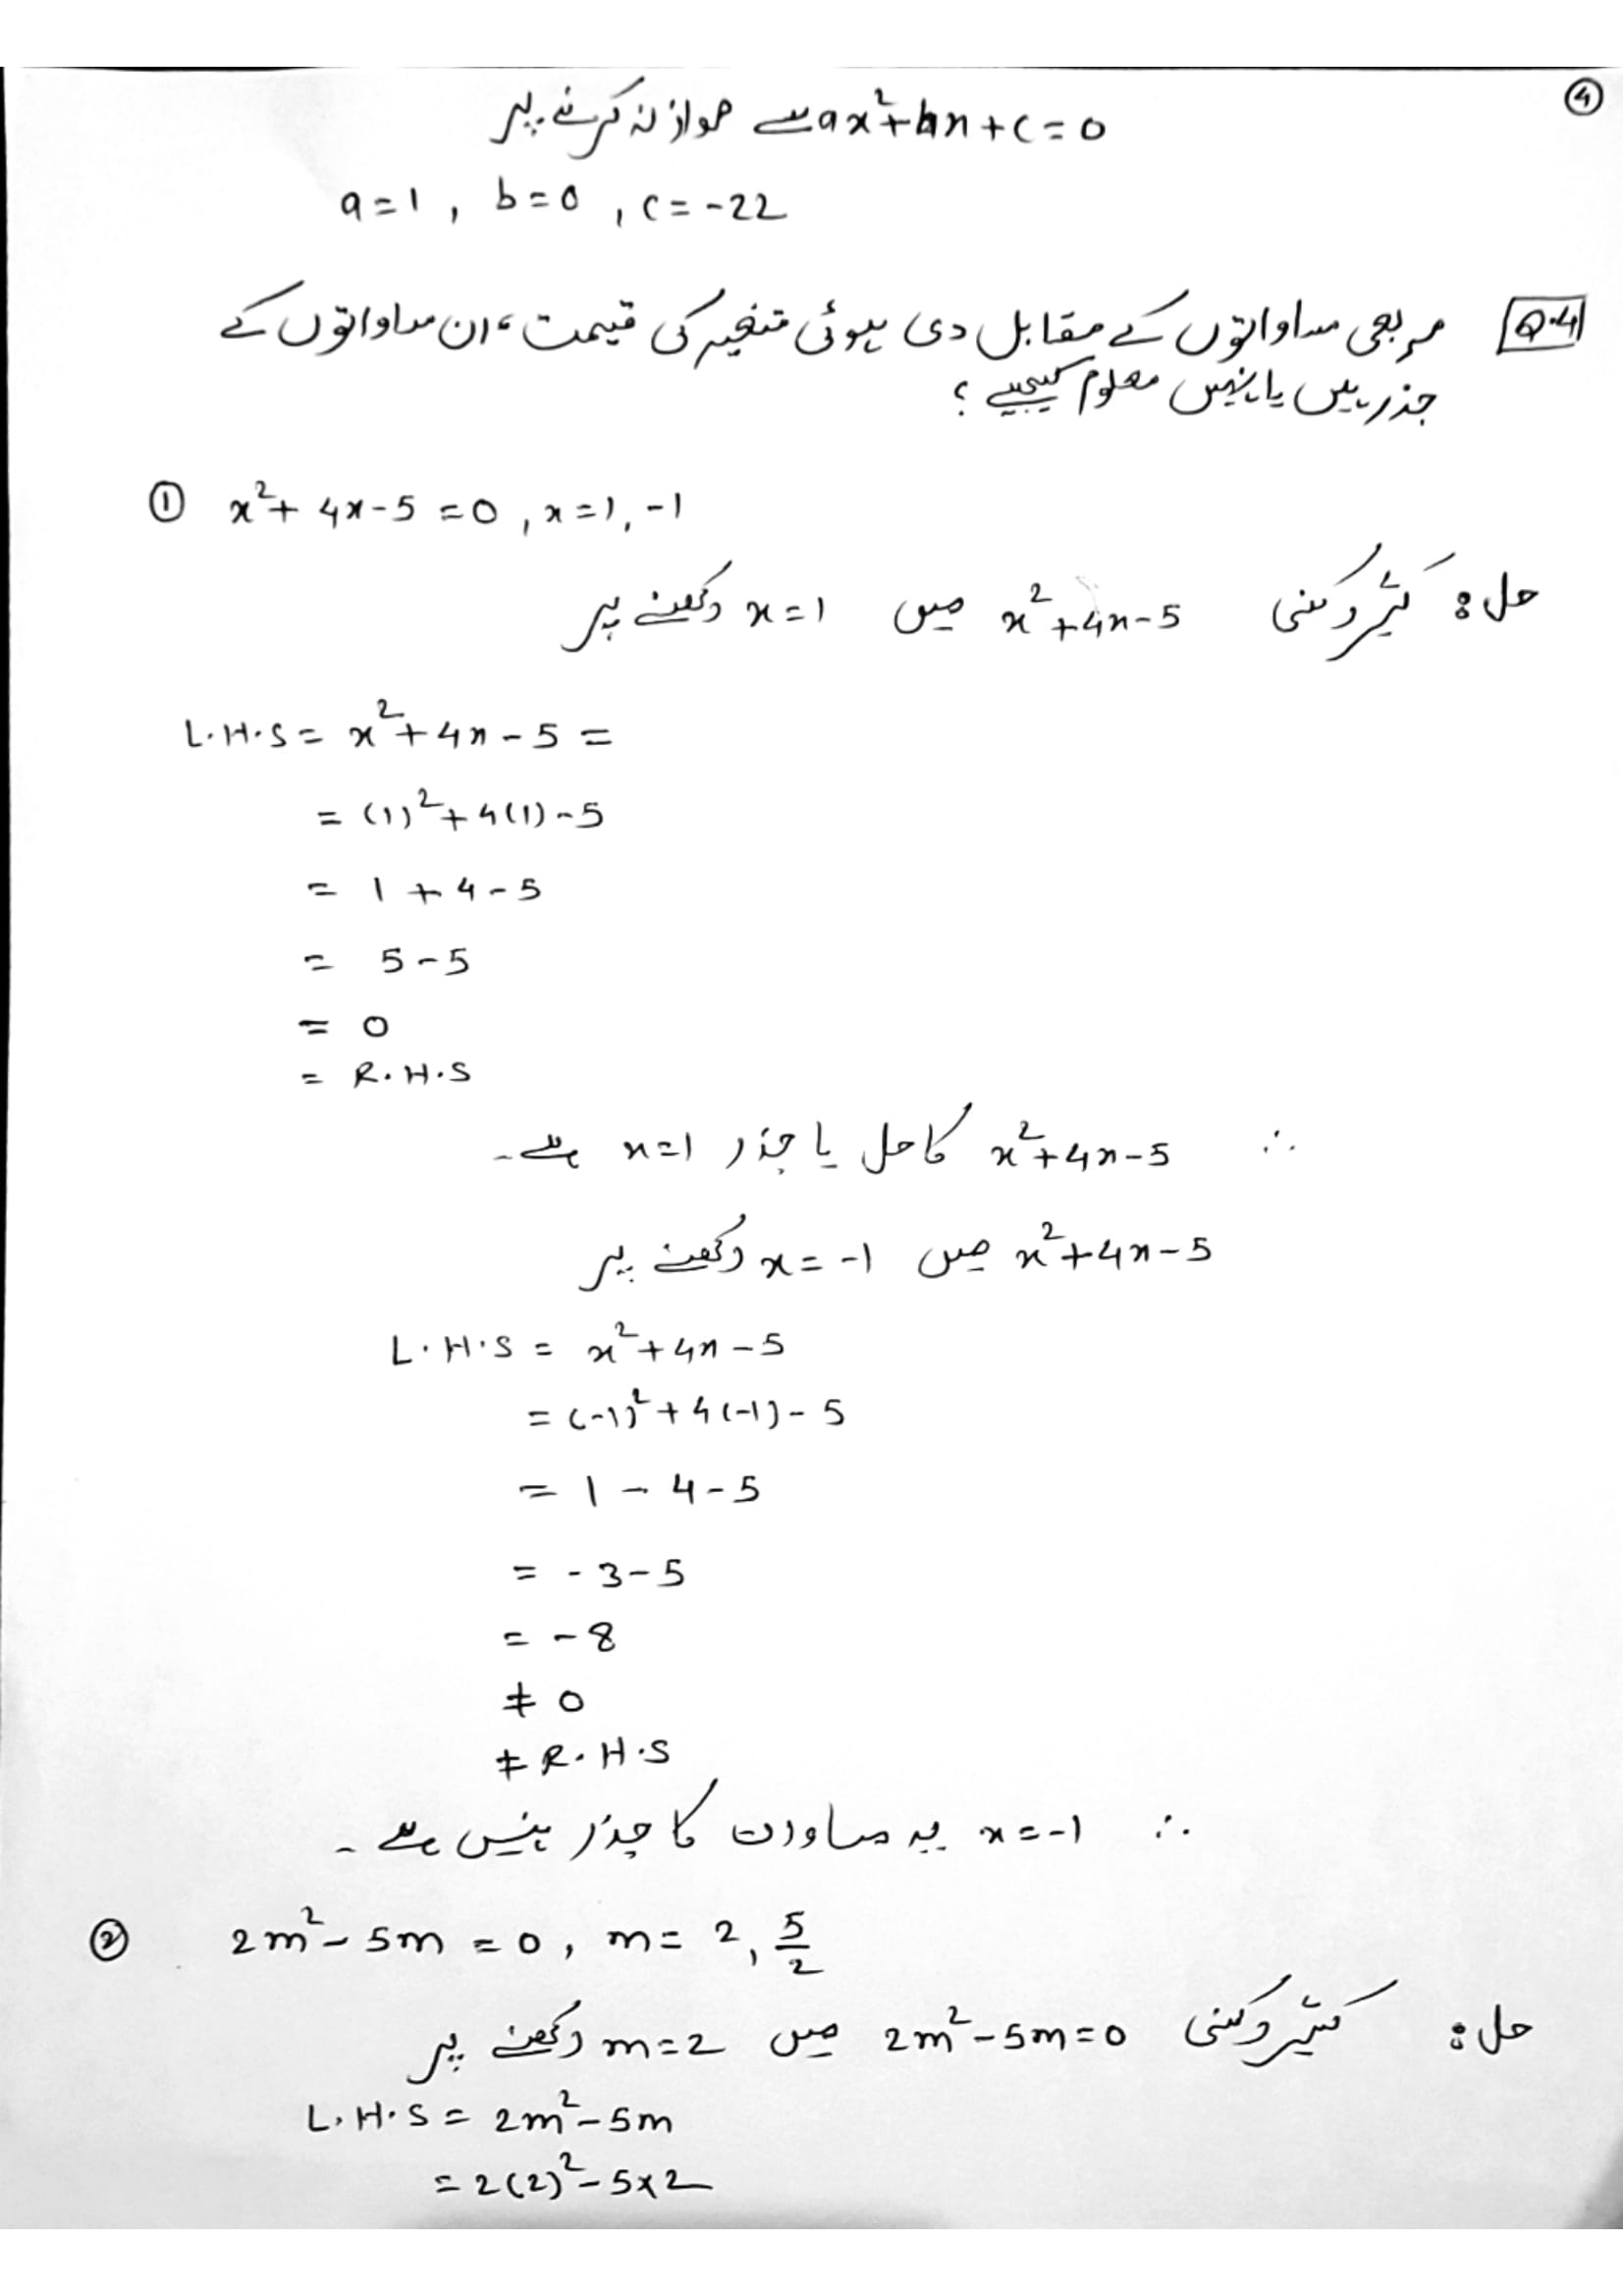 ④
ax²+bx+c=0 سے موازنہ کرنے پر
a=1, b=0, c=-22
Q.4 مربعی مساواتوں کے مقابل دی ہوئی متغیر کی قیمت، ان مساواتوں کے
جذر ہیں یا نہیں معلوم کیجیے؟
① x²+4x-5=0, x=1,-1
حل: کثیر رکنی x²+4x-5 میں x=1 رکھنے پر
L.H.S = x²+4x-5 =
= (1)²+4(1)-5
= 1+4-5
= 5-5
= 0
= R.H.S
∴ x²+4x-5 کا حل یا جذر x=1 ہے۔
x²+4x-5 میں x=-1 رکھنے پر
L.H.S = x²+4x-5
= (-1)²+4(-1)-5
= 1-4-5
= -3-5
= -8
≠ 0
≠ R.H.S
∴ x=-1 یہ مساوات کا جذر نہیں ہے۔
② 2m²-5m=0, m=2, 5/2
حل: کثیر رکنی 2m²-5m=0 میں m=2 رکھنے پر
L.H.S = 2m²-5m
= 2(2)²-5×2